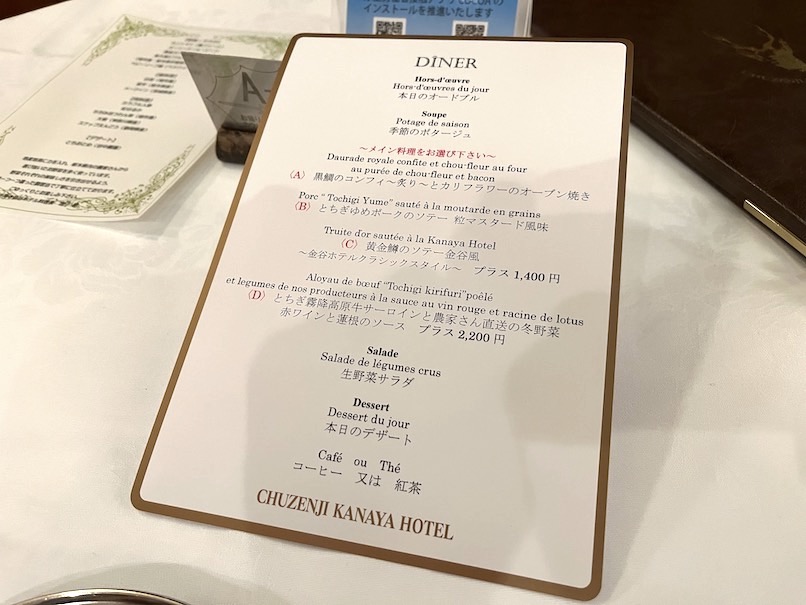 インストールを推進いたします
DÎNER
Hors-d'œuvre
Hors-d'œuvres du jour
本日のオードブル
Soupe
Potage de saison
季節のポタージュ
～メイン料理をお選び下さい～
Daurade royale confite et chou-fleur au four
au purée de chou-fleur et bacon
(A) 黒鯛のコンフィ～炙り～とカリフラワーのオーブン焼き
Porc " Tochigi Yume" sauté à la moutarde en grains
(B) とちぎゆめポークのソテー 粒マスタード風味
Truite d'or sautée à la Kanaya Hotel
(C) 黄金鱒のソテー金谷風
～金谷ホテルクラシックスタイル～ プラス 1,400 円
Aloyau de bœuf "Tochigi kirifuri"poêlé
et legumes de nos producteurs à la sauce au vin rouge et racine de lotus
(D) とちぎ霧降高原牛サーロインと農家さん直送の冬野菜
赤ワインと蓮根のソース プラス 2,200 円
Salade
Salade de légumes crus
生野菜サラダ
Dessert
Dessert du jour
本日のデザート
Café ou Thé
コーヒー 又は 紅茶
CHUZENJI KANAYA HOTEL